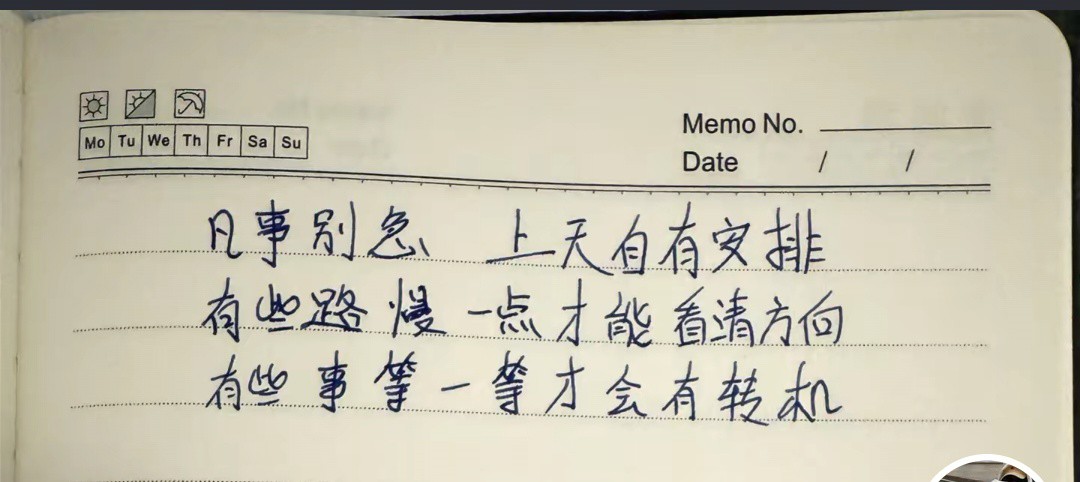 Mo Tu We Th Fr Sa Su
Memo No.
Date / /
凡事别急 上天自有安排
有些路慢一点才能看清方向
有些事等一等才会有转机